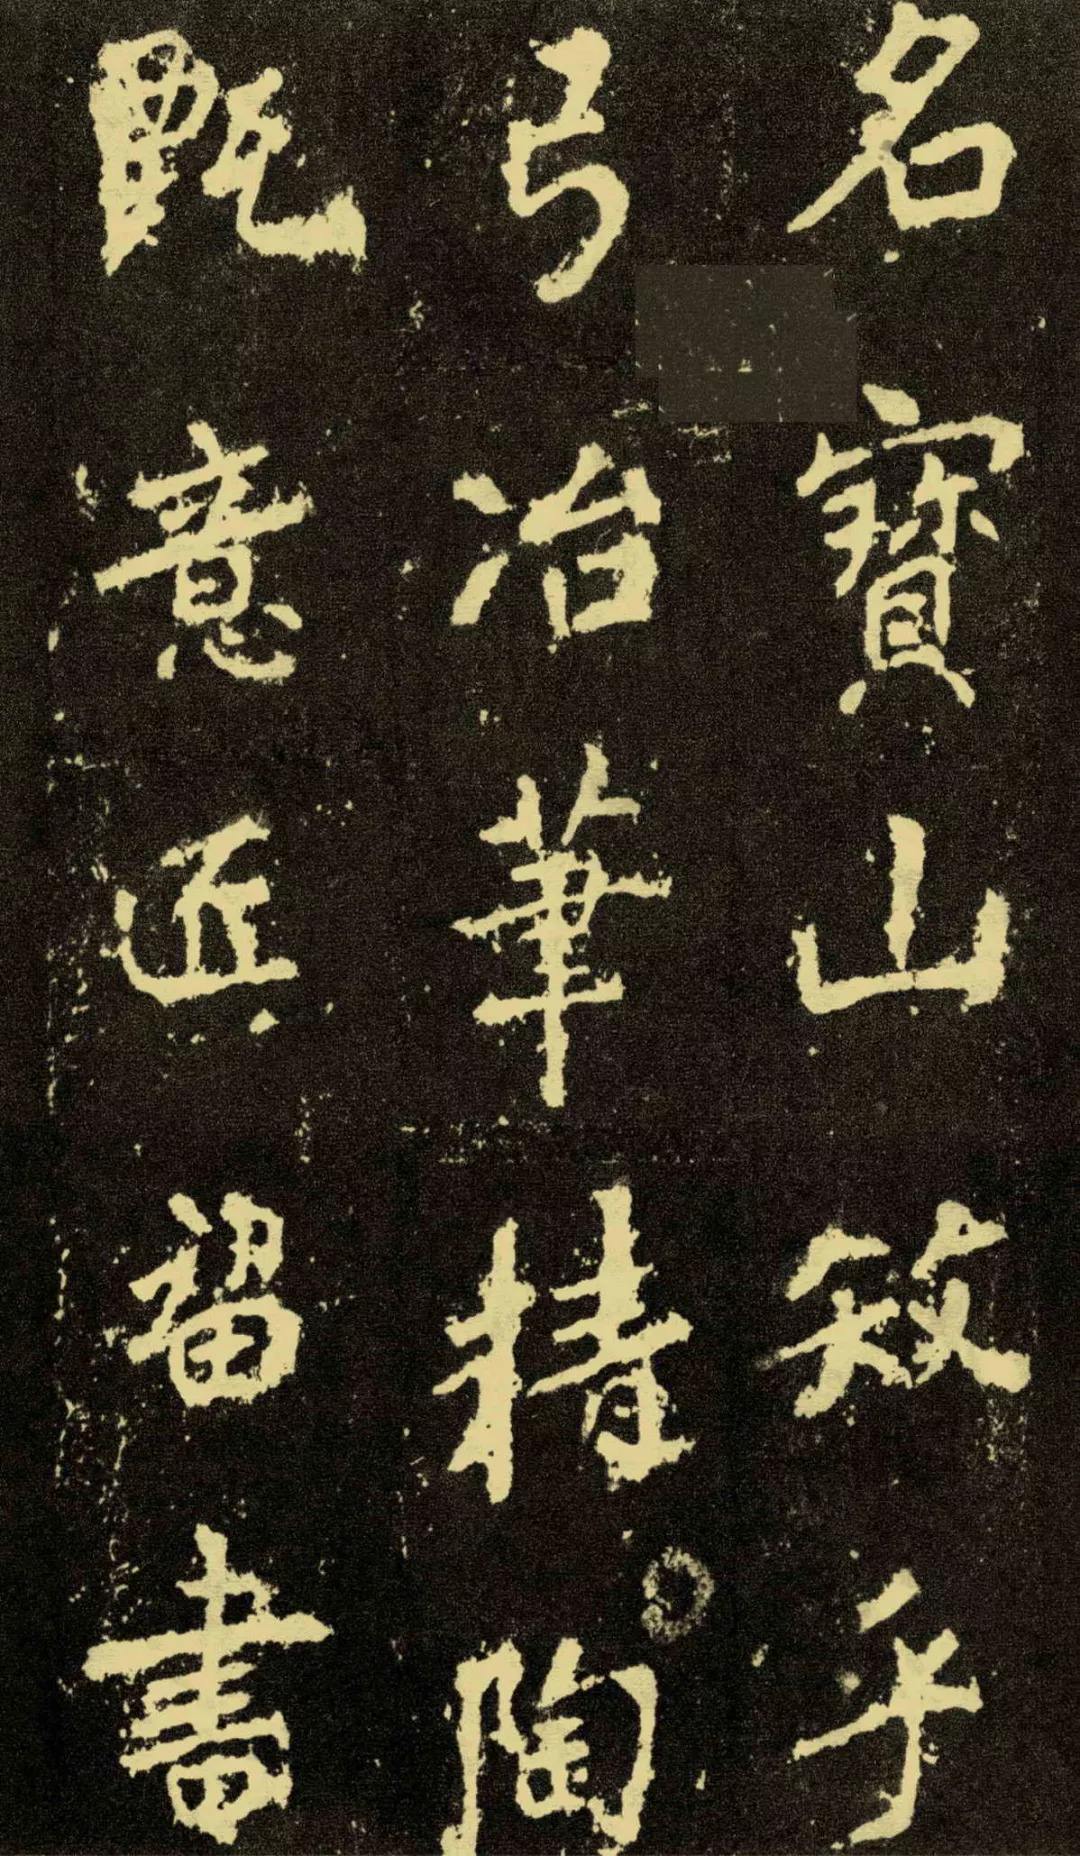 名寶山效乎
弓冶筆精陶
甄意近留書